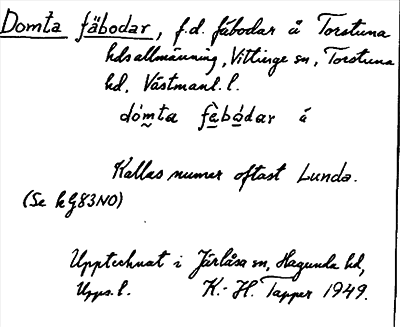 Domta fäbodar, f.d. fäbodar å Torstuna
hdsallmänning, Vittinge sn, Torstuna
hd, Västmanl. l.
dómta fä̀bó̀dar á
Kallas numer oftast Lunda.
(Se kG83NO)
Upptecknat i Järlåsa sn, Hagunda hd,
Upps. l. K.-H. Tapper 1949.